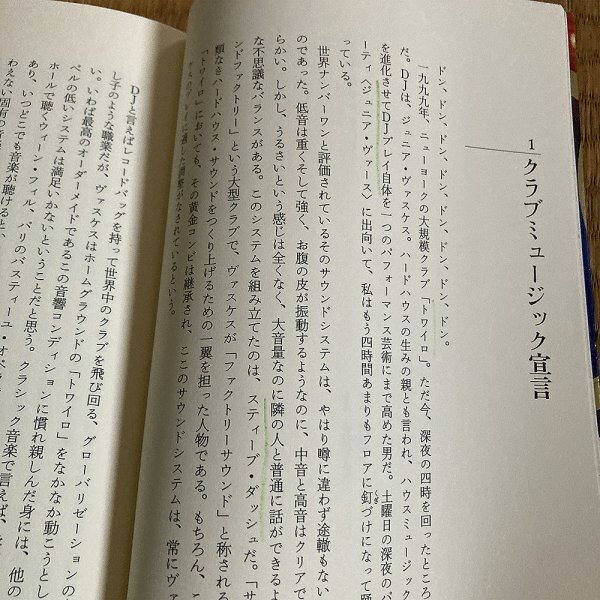 1 クラブミュージック宣言
ドン、ドン、ドン、ドン、ドン、ドン、ドン、ドン。
一九九九年、ニューヨークの大規模クラブ「トワイロ」。ただ今、深夜の四時を回ったところ
だ。DJは、ジュニア・ヴァスケス。ハードハウスの生みの親とも言われ、ハウスミュージック
を進化させてDJプレイ自体を一つのパフォーマンス芸術にまで高めた男だ。土曜日の深夜のパ
ーティ〈ジュニア・ヴァース〉に出向いて、私はもう四時間あまりもフロアに釘づけになって踊
っている。
世界ナンバーワンと評価されているそのサウンドシステムは、やはり噂に違わず途轍もない
のであった。低音は重くそして強く、お腹の皮が振動するようなのに、中音と高音はクリアで
らかい。しかし、うるさいという感じは全くなく、大音量なのに隣の人と普通に話ができるよ
な不思議なバランスがある。このシステムを組み立てたのは、スティーブ・ダッシュだ。「サ
ンドファクトリー」という大型クラブで、ヴァスケスが「ファクトリーサウンド」と称される
類なきハードハウス・サウンドをつくり上げるための一翼を担った人物である。もちろん、こ
「トワイロ」においても、その黄金コンビは継承され、ここのサウンドシステムは、常にヴァ
されているという。
DJと言えばレコードバッグを持って世界中のクラブを飛び回る、グローバリゼーションの
し子のような職業だが、ヴァスケスはホームグラウンドの「トワイロ」をなかなか動こうとし
い。いわば最高のオーダーメイドであるこの音響コンディションに慣れ親しんだ身には、他の
ベルの低いシステムは満足いかないということだと思う。クラシック音楽で言えば、
ホールで聴くウィーン・フィル、パリのバスティーユ・オペ
あり、いつどこでも音楽が聴けると、
わえない固有の音